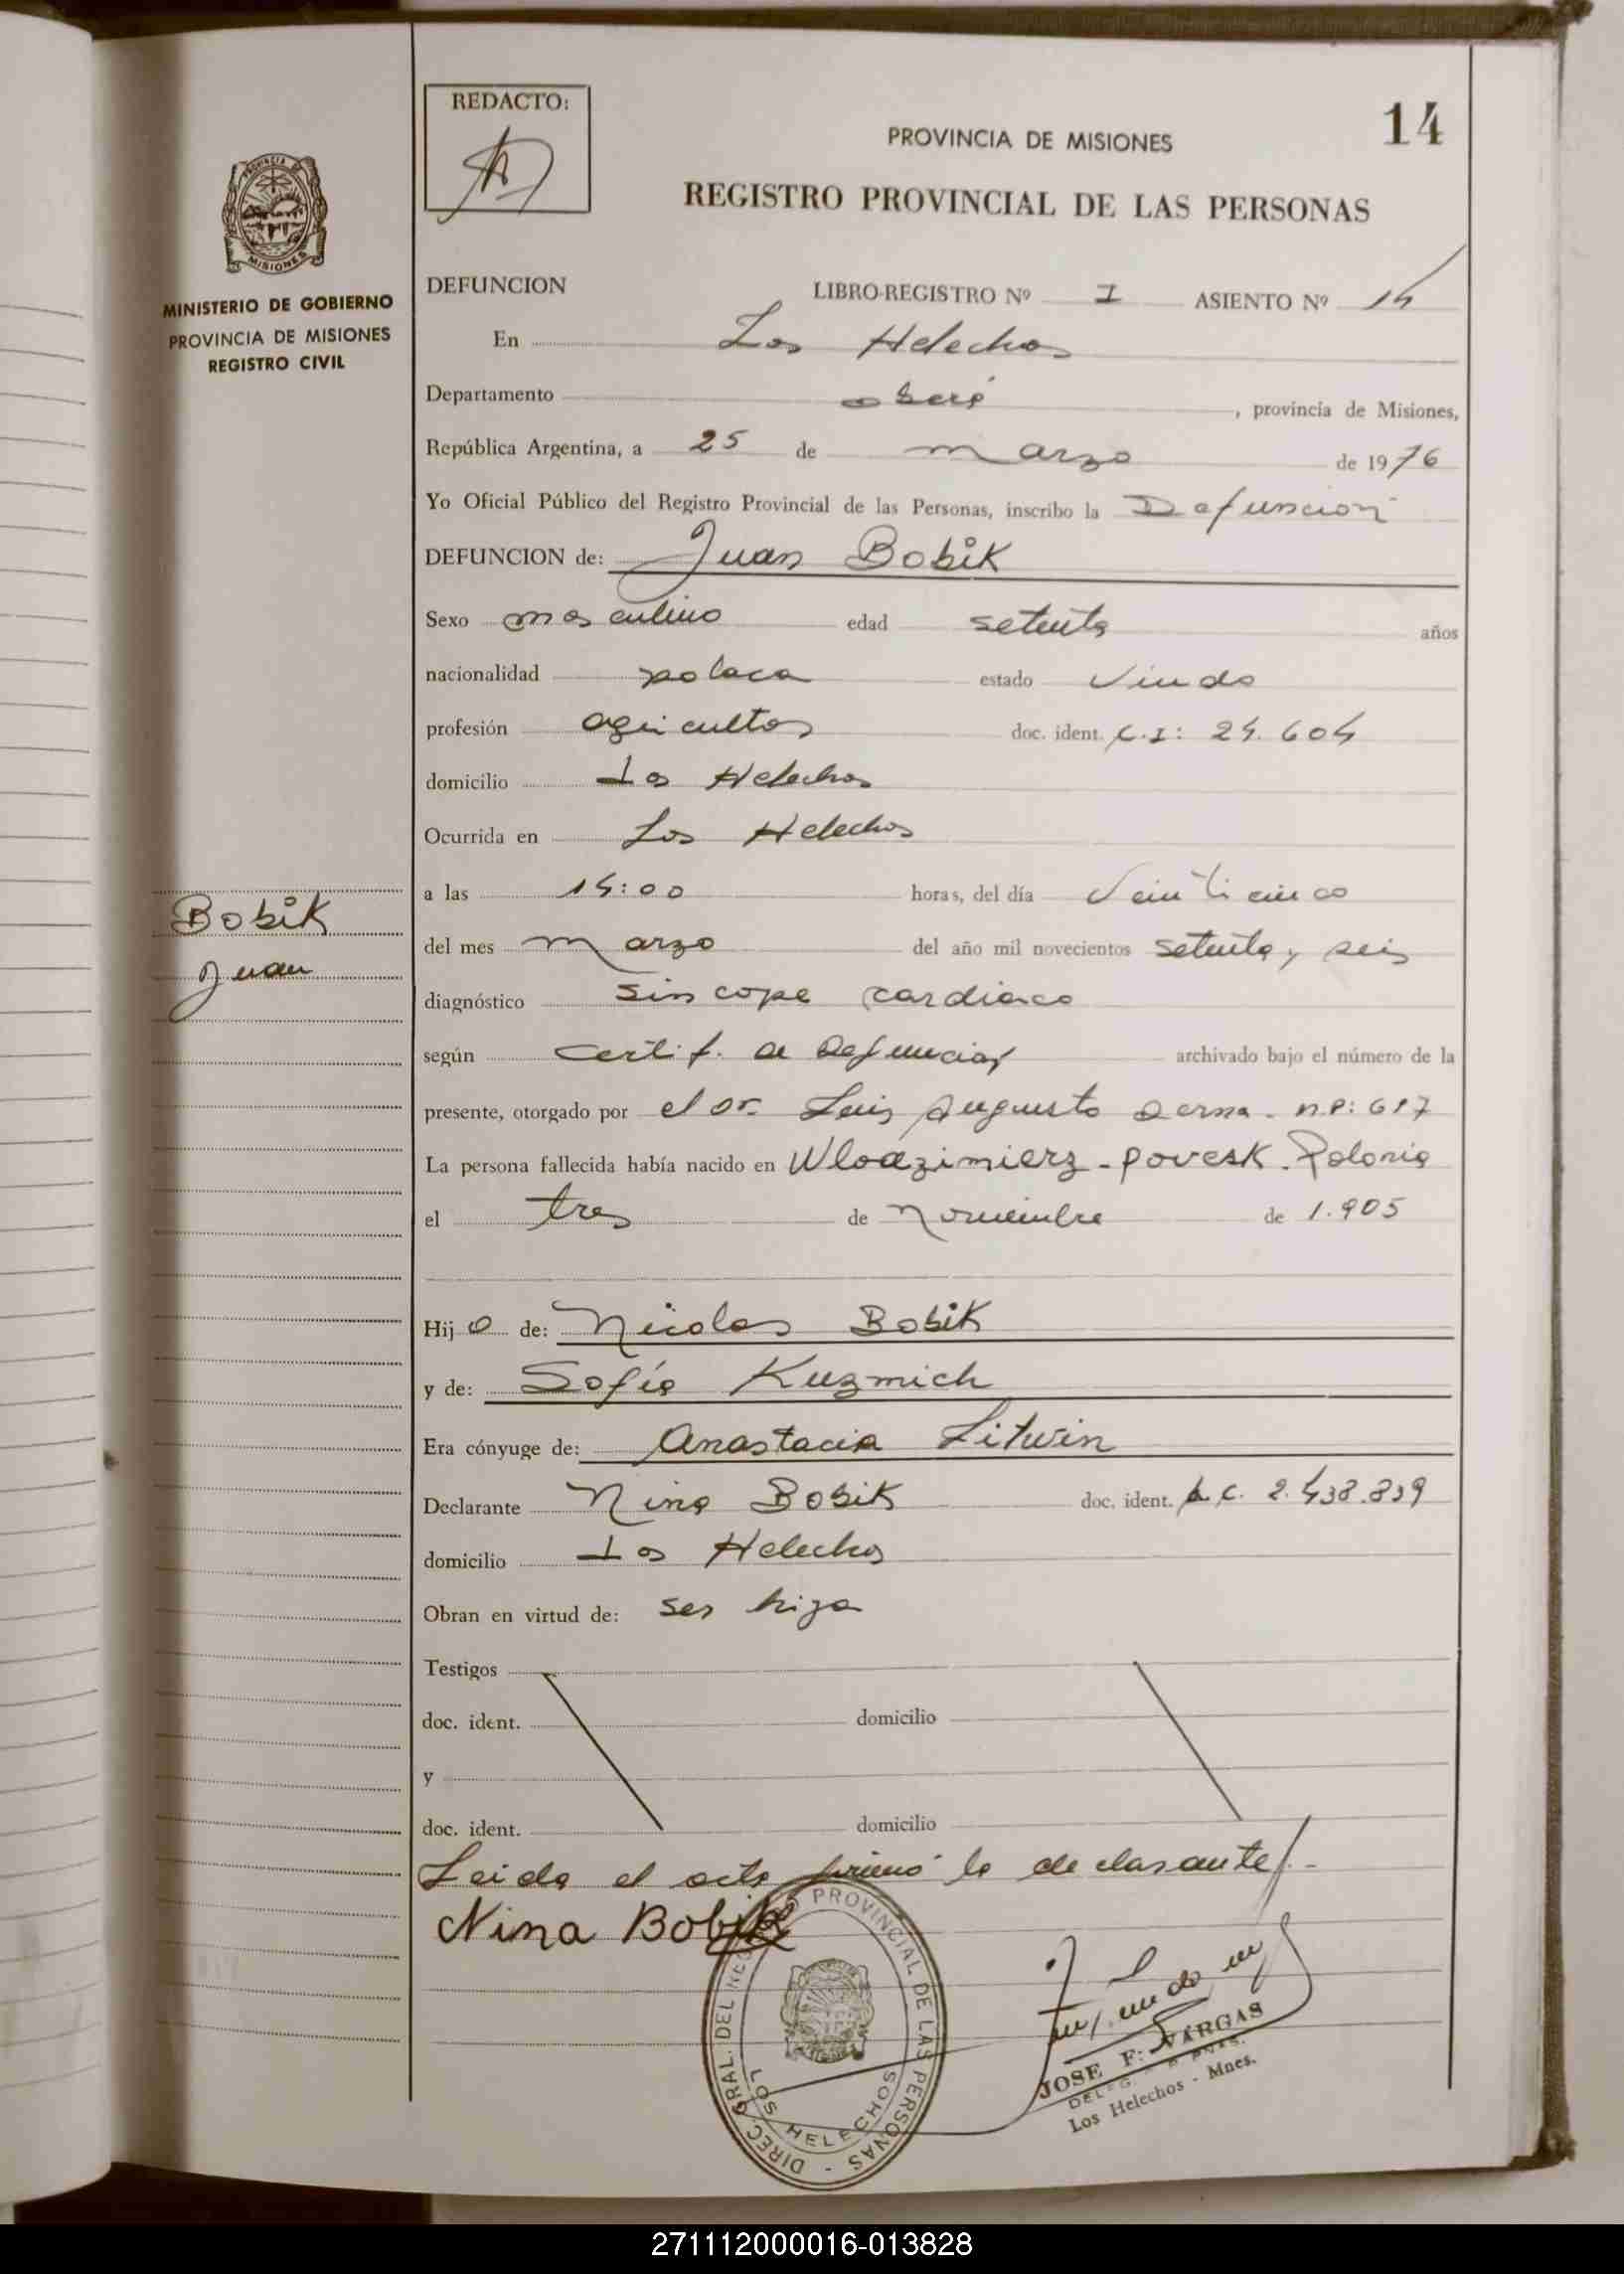 REDACTO:
14
PROVINCIA DE MISIONES
REGISTRO PROVINCIAL DE LAS PERSONAS
MISIONES
MINISTERIO DE GOBIERNO
PROVINCIA DE MISIONES
REGISTRO CIVIL
DEFUNCION LIBRO-REGISTRO Nº I ASIENTO Nº 14
En Los Helechos
Departamento oberá, provincia de Misiones,
República Argentina, a 25 de marzo de 1976
Yo Oficial Público del Registro Provincial de las Personas, inscribo la Defunción
DEFUNCION de: Juan Bobik
Sexo masculino edad setenta años
nacionalidad polaca estado Viudo
profesión agricultor doc. ident. C.I: 24.604
domicilio Los Helechos
Ocurrida en Los Helechos
a las 14:00 horas, del día Veinticinco
Bobik
Juan
del mes marzo del año mil novecientos setenta y seis
diagnóstico sincope cardiaco
según certif. de Defuncion archivado bajo el número de la
presente, otorgado por el Dr. Luis Augusto Derna - M.P: 617
La persona fallecida había nacido en Wlodzimierz - Povesk - Polonia
el tres de noviembre de 1.905
Hijo de: Nicolas Bobik
y de: Sofía Kuzmich
Era cónyuge de: Anastacia Litwin
Declarante Nina Bobik doc. ident. L.C. 2.438.839
domicilio Los Helechos
Obran en virtud de: ser hija
Testigos
doc. ident. domicilio
y
doc. ident. domicilio
Leida el acta firmó la declarante/.-
Nina Bobik
DIREC. GRAL. DEL REGISTRO PROVINCIAL DE LAS PERSONAS -
LOS HELECHOS
JOSE F. VARGAS
Los Helechos - Mnes.
271112000016-013828